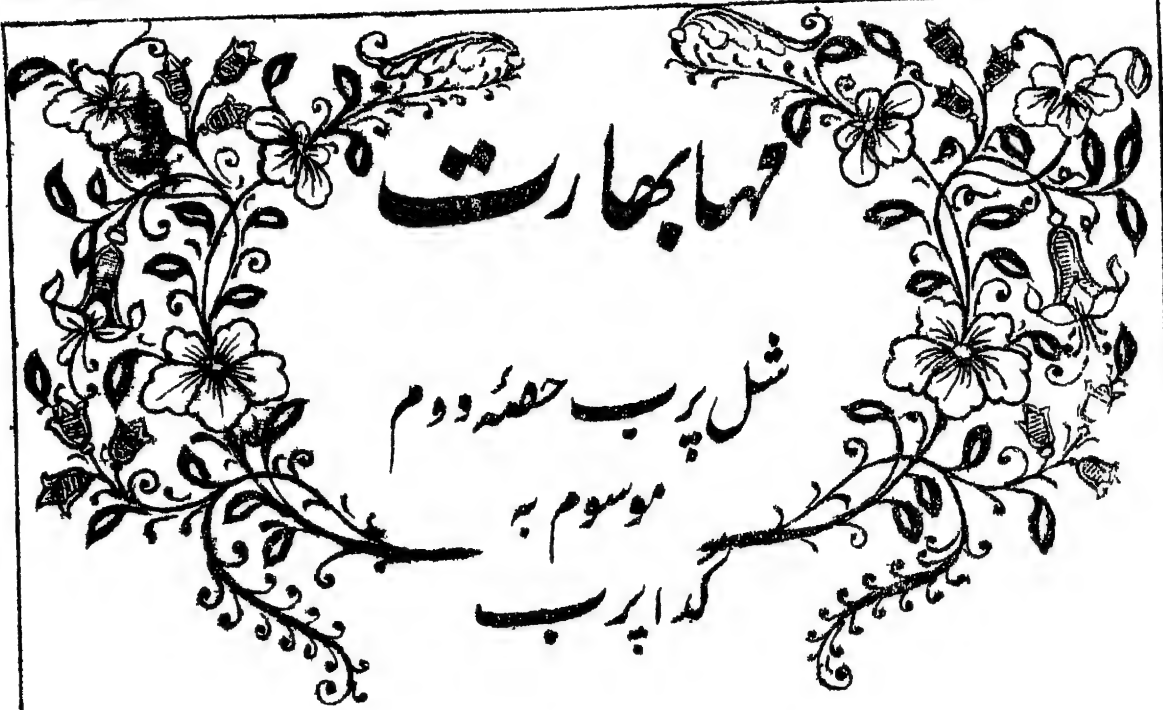 مہابھارت
شل پرب حصئہ دوم
موسوم بہ
گدا پرب